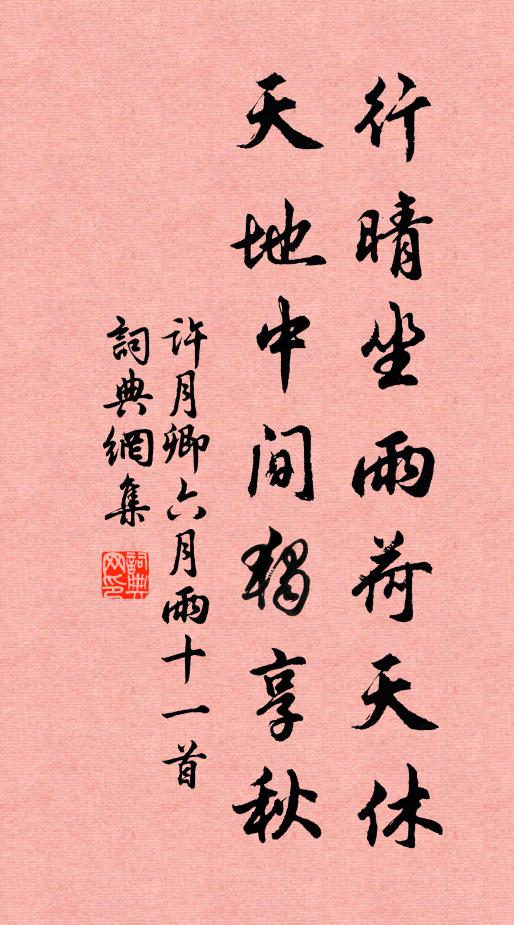 行晴坐雨荷天休
天地中間獨享秋
許月卿六月雨十一首
詞典網集
詞典網印